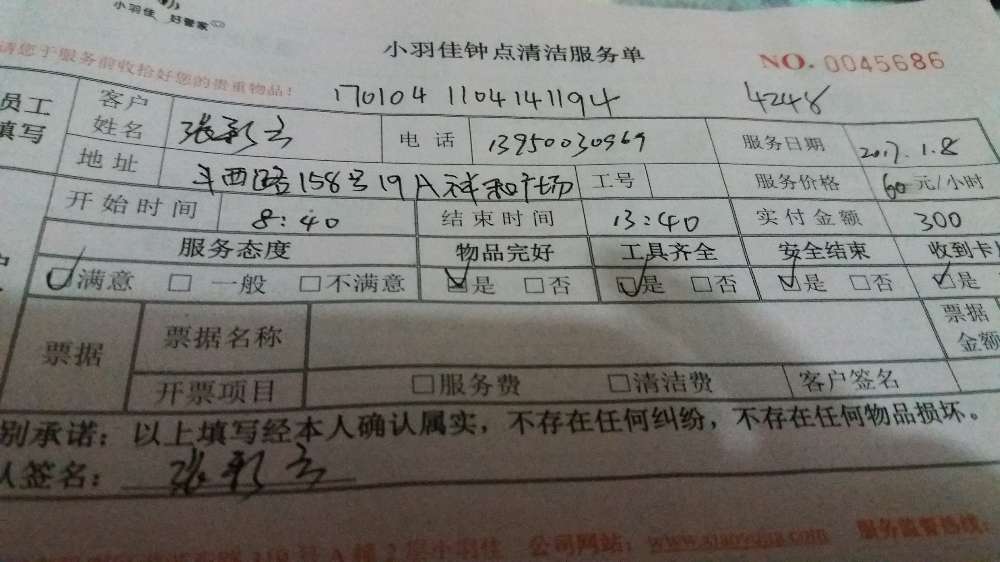 小羽佳 好管家
小羽佳钟点清洁服务单
NO. 0045686
请您于服务前收拾好您的贵重物品!
170104 1104141194 4248
员工填写 客户姓名 张彩云 电话 13950030969 服务日期 2017.1.8
地址 斗西路158号19A祥和广场 工号 服务价格 60元/小时
开始时间 8:40 结束时间 13:40 实付金额 300
服务态度 物品完好 工具齐全 安全结束 收到卡
☑满意 □一般 □不满意 ☑是 □否 ☑是 □否 ☑是 □否 ☑是
票据 票据名称 票据金额
开票项目 □服务费 □清洁费 客户签名
别承诺:以上填写经本人确认属实,不存在任何纠纷,不存在任何物品损坏。
人签名: 张彩云
310号A幢2层小羽佳 公司网站: www.xiaoyujia.com 服务监督热线: